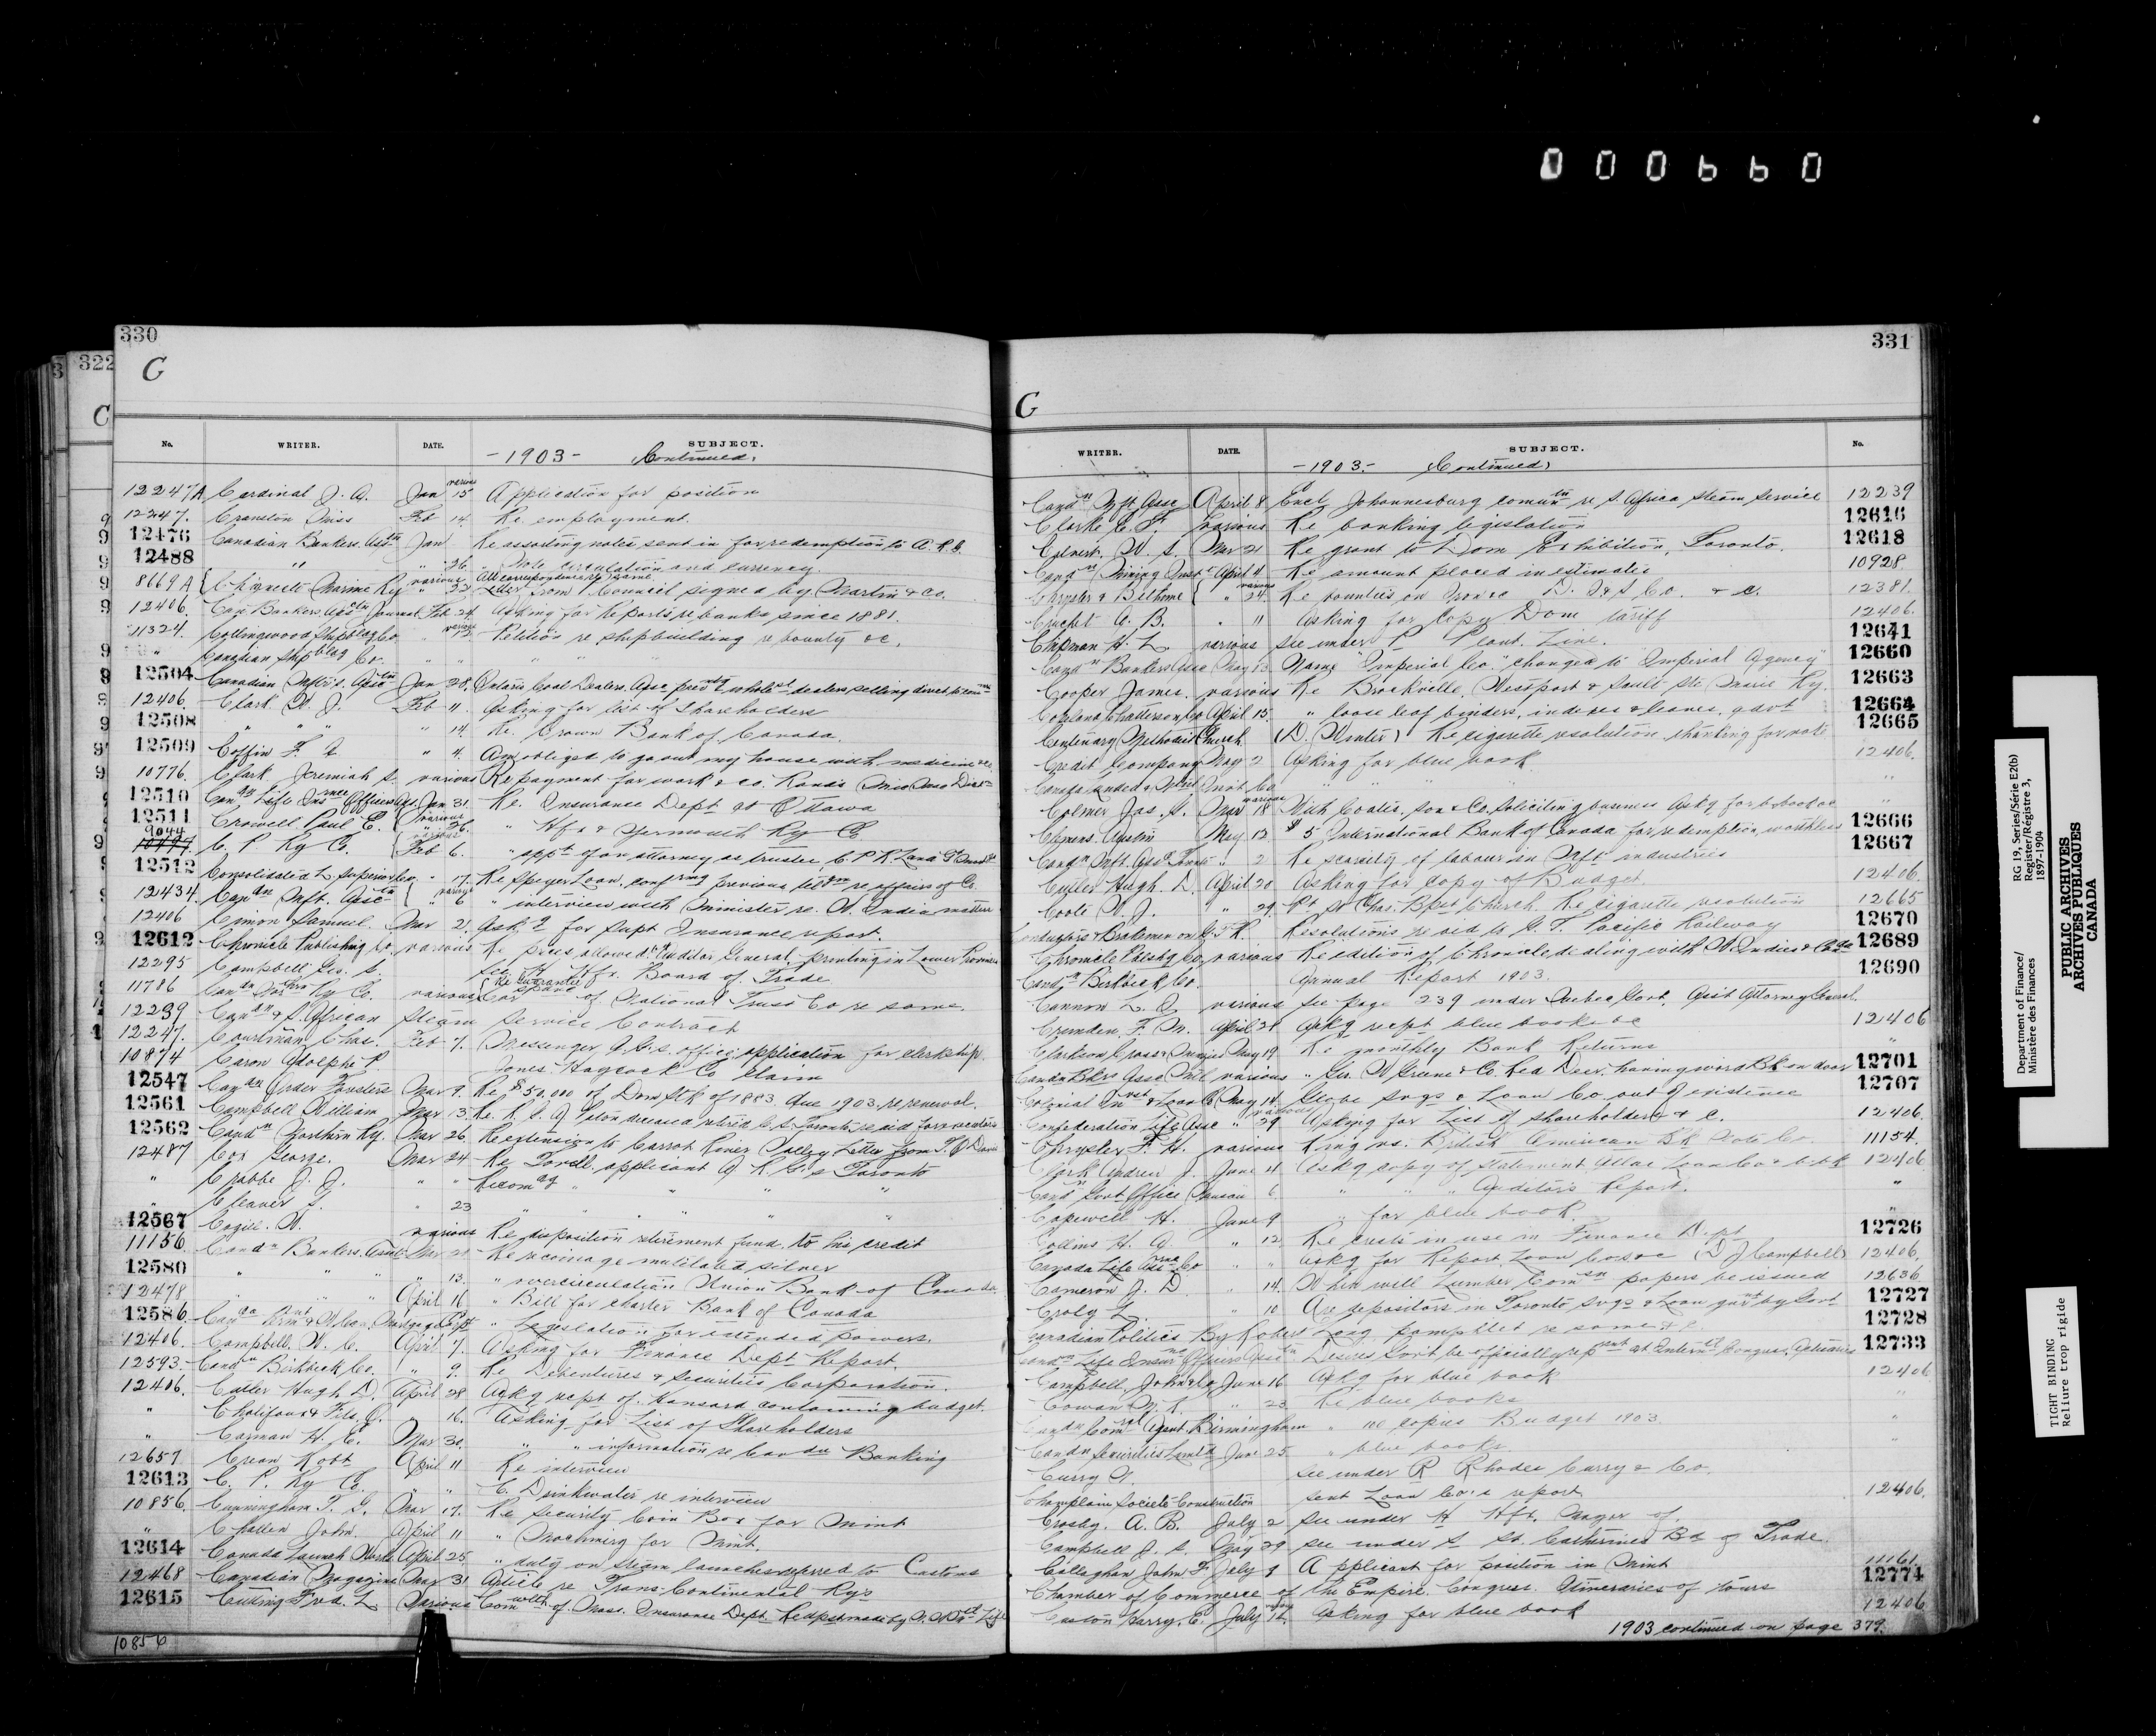 000660
330
C
No. WRITER. DATE. SUBJECT.
-1903- Continued.
12247A Cardinal J. A. Jan 15 various Application for position
12247. Cranston Miss Feb 14. Re employment.
12476 Canadian Bankers Assctn Jan Re assorting notes sent in for redemption to A.R.G.
12488 " " 26. " Note circulation and currency.
8669A Chignecto Marine Ry various " 22 All correspondence re same. Letter from P Council signed by Martin & Co.
12406. Can Bankers Assctn Journal Feb 24. Asking for Reports re banks since 1881.
11324. Collingwood Shipbldg Co. " 12 various Petition re shipbuilding re bounty &c.
" Canadian Shipbldg Co. " " " " "
12504 Canadian Mftr's. Assctn Jan 28. Ontario Coal Dealers Assc prevntg wholesl dealers selling direct to
12406. Clark W. J. Feb 11. Asking for list of Shareholders
12508 " " " " 14. Re. Crown Bank of Canada.
12509 Coffin F. " 4. Am obliged to go out my house with medicine &c
10776. Clark Jeremiah S. various Re payment for work & co.
12510 Candn Life Insrnce Officers Ass. Jan 31. Re. Insurance Dept at Ottawa
12511 Crowell Paul E. various " 26. " Hfx & Yarmouth Ry Co.
9044 C. P. Ry Co. Feb 6. " appt of an attorney as trustee C. P. R. Land
12512 Consolidated L. Superior Co. " 17. Re Speyer Loan, confrmg previous re affairs of Co.
12434. Candn Mft. Assctn various " 6 " interview with Minister re. W. India matters
12406 Simon Samuel. Mar 2. Ask.g for Supt Insurance report.
12612 Chronicle Publishing Co. various Re prices allowed by Auditor General, printing in Lower Provinces
12295 Campbell Geo. S. see H Hfx. Board of Trade
11786 Candn Northrn Ry Co. various Re Guarantee of National Trust Co re same.
12239 Candn & S. African Steam Service Contract
12247. Courtman Chas. Feb 7. Messenger A.G.'s. office application for clerkship.
10874 Caron Adolphe P. Jones-Haycock Co Claim
12547 Candn Order Foresters Mar 9. Re $50,000 of Dom Stk of 1883 due 1903. re renewal.
12561 Campbell William Mar 13.
12562 Candn Northern Ry. Mar 26. Re extension to Carrot River Valley Letter from T. O. Davis
12487 Cox George. Mar 24 Re Tovell. applicant A R G's Toronto
" Crabbe J. J. " " Recomdg " " "
" Cleaver S. " 23 " " " " "
12567 Cogill. W. various Re disposition retirement fund, to his credit
11156. Candn Bankers Assct Re recoinage mutilated silver
12580 " " " " 13. " overcirculation Union Bank of Canada.
12478 " " " April 16 " Bill for charter Bank of Canada
12586. " Legislation for extended powers.
12406. Campbell. W. C. April 7. Asking for Finance Dept Report.
12593. Candn Birkbeck Co. " 9. Re Debentures & Securities Corporation.
12406. Cutler Hugh D. April 28 Askg rept of Hansard containing budget.
" Chalifoux & Fils, O. 16. Asking for List of Shareholders
" Carman H. E. Mar 30. " " information re Candn Banking
12657. Crean Robt April 11 Re interview
12613 C. P. Ry Co. " " C. Drinkwater re interview
10856. Cunningham T. G. Mar 17. Re security Coin Box for Mint
" Challen John. April 11 " Machining for Mint.
12614 Canada Launch Works April 25. " duty on steam launches referred to Customs
12468 Canadian Magazine Mar 31 Article re Trans-Continental Rys
12615 Cutting Fred. L various Comwlth of Mass. Insurance Dept.
10856
331
C
WRITER. DATE. SUBJECT. No.
-1903.- Continued.
Candn Mft Assc April 8 Encl Johannesburg comuntn re S. Africa Steam Service 12239
Clarke C. F. various Re banking legislation 12616
Calvert W. S. Mar 21 Re grant to Dom Exhibition, Toronto. 12618
Candn Mining Inst April 4 Re amount placed in estimates 10928
Chrysler & Bethune " 24. various Re bounties on Iron &c D. I & S Co. & c. 12381.
Crichet A. B. " 11 Asking for Copy Dom tariff 12406.
Chipman H. L various See under P Plant. Line. 12641
Candn Bankers Assc May 13 Name "Imperial Co." changed to "Imperial Agency" 12660
Cooper James. various Re Brockville, Westport & Sault Ste Marie Ry. 12663
Copeland Chatterson Co April 15. " loose leaf binders, indexes & leaves, govt 12664
Centenary Methodist Church (D. Winter) Re cigarette resolution thanking for note 12665
Credit Company May 2 Asking for blue book. 12406.
"
Colmer Jas. S. Mar 18 various With Coates, Son & Co. Soliciting business Askg for b-book &c "
Clemens. Austin May 12 $5 International Bank of Canada for redemption, worthless 12666
Candn Mft. Assc " 2 Re scarcity of labour in Mft industries 12667
Cutler Hugh. D. April 20 Asking for copy of Budget 12406.
Coote W. J. " 29. Pt St Chas. Bpist Church Re cigarette resolution 12665
Conductors & Brakemen on G.T.R. Resolutions re aid to G. T. Pacific Railway 12670
Chronicle Pblshg Co various Re edition of Chronicle dealing with W. Indies & Canda 12689
Candn Birkbeck Co. Annual Report 1903. 12690
Cannon L. A various See page 239 under Quebec Govt. Asst Attorney General.
Crunden. F. M. April 21 Askg rept blue books &c 12406
Clarkson Cross & May 19 Re monthly Bank Returns "
Candn Bkrs Assc various " Geo. W Greene & Co. Red Deer, having word Bk on door 12701
Colonial Invst & Loan Co May 14. Globe Svgs & Loan Co. out of existence 12707
Confederation Life Assc " 29 various Asking for List of shareholders & c. 12406.
Chrysler F. H. various King vs. British American Bk Note Co 11154.
Clark Andrew J. June 4 Askg copy of statement Atlas Loan Co & b-bk 12406
Candn Govt Office 6. " " " Auditor's Report. "
Capewell H. June 9 " for blue book. "
Collins H. A " 12 Re crests in use in Finance Dept 12726
Canada Life Assrnce Co " " Askg for Report Loan Cos. &c (D J Campbell) 12406.
Cameron J. D. " 14. When will Lumber Comsn papers be issued 12636
Croly L. " 10 Are depositors in Toronto Svgs & Loan by Govt 12727
Canadian Politics By Robert Long pamphlet re same & c. 12728
Candn Life Insurnce Officers Assctn Desires Govt be officially represented at Internatl Congress, Actuaries 12733
Campbell, John & Co June 16 Askg for blue book 12406
Cowan " 23 Re blue books "
Candn Comrcl Agent. Birmingham " copies Budget 1903. "
Candn Securities Limitd June 25. " blue books "
Curry N. see under R Rhodes Curry & Co.
Champlain Societe-Construction sent Loan Co's report 12406.
Crosby. A. B. July 2 see under H Hfx. Mayor of.
Campbell J. S. May 29 see under S St. Catherines Bd of Trade.
Callaghan John F. July 8 Applicant for position in Mint 11161
Chamber of Commerce of the Empire Congress. Itineraries of tours 12774
Caston Harry. E. July Asking for blue book 12406
1903 continued on page 379.
322
C
Department of Finance/
Ministère des Finances
RG 19, Series/Série E2(b)
Register/Régistre 3,
1897-1904
PUBLIC ARCHIVES
ARCHIVES PUBLIQUES
CANADA
TIGHT BINDING
Reliure trop rigide